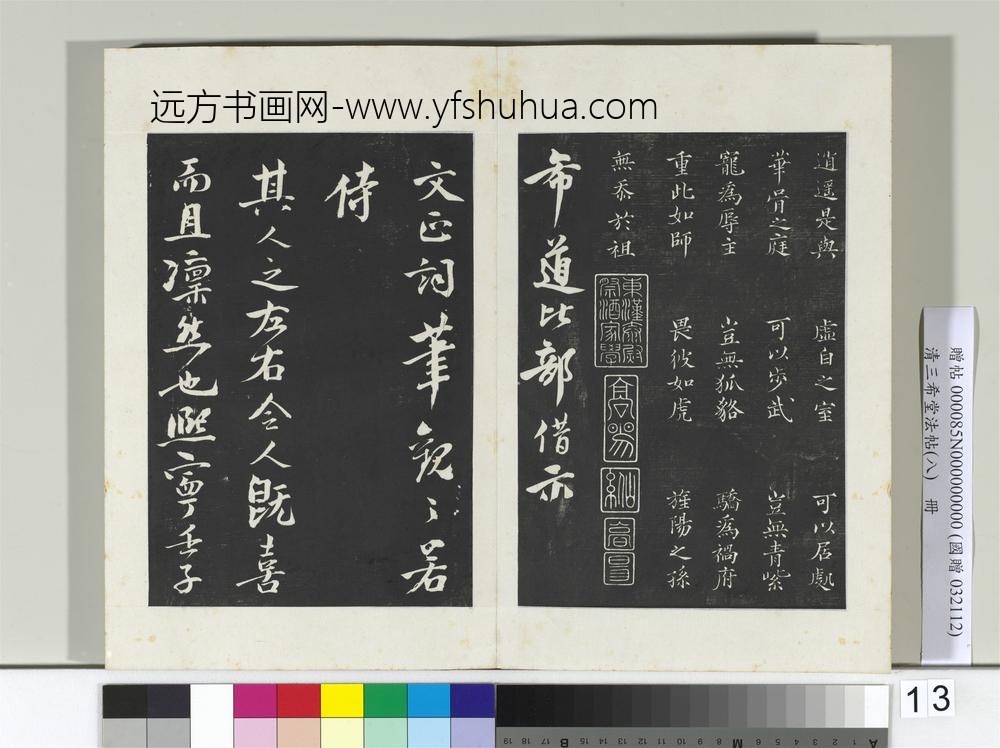 远方书画网-www.yfshuhua.com
逍遥是與 虛白之室 可以居處
華胥之庭 可以步武 豈無青紫
寵為辱主 豈無狐貉 驕為禍府
重此如師 畏彼如虎 旌陽之孫
無忝於祖
東漢泰尉祭酒家學
高陽
希道比部借示
文正詞筆觀之若
侍
其人之左右令人既喜
而且凛然也熙寧壬子
贈帖 000085N000000000 (國贈 032112)
清三希堂法帖(八) 冊
13